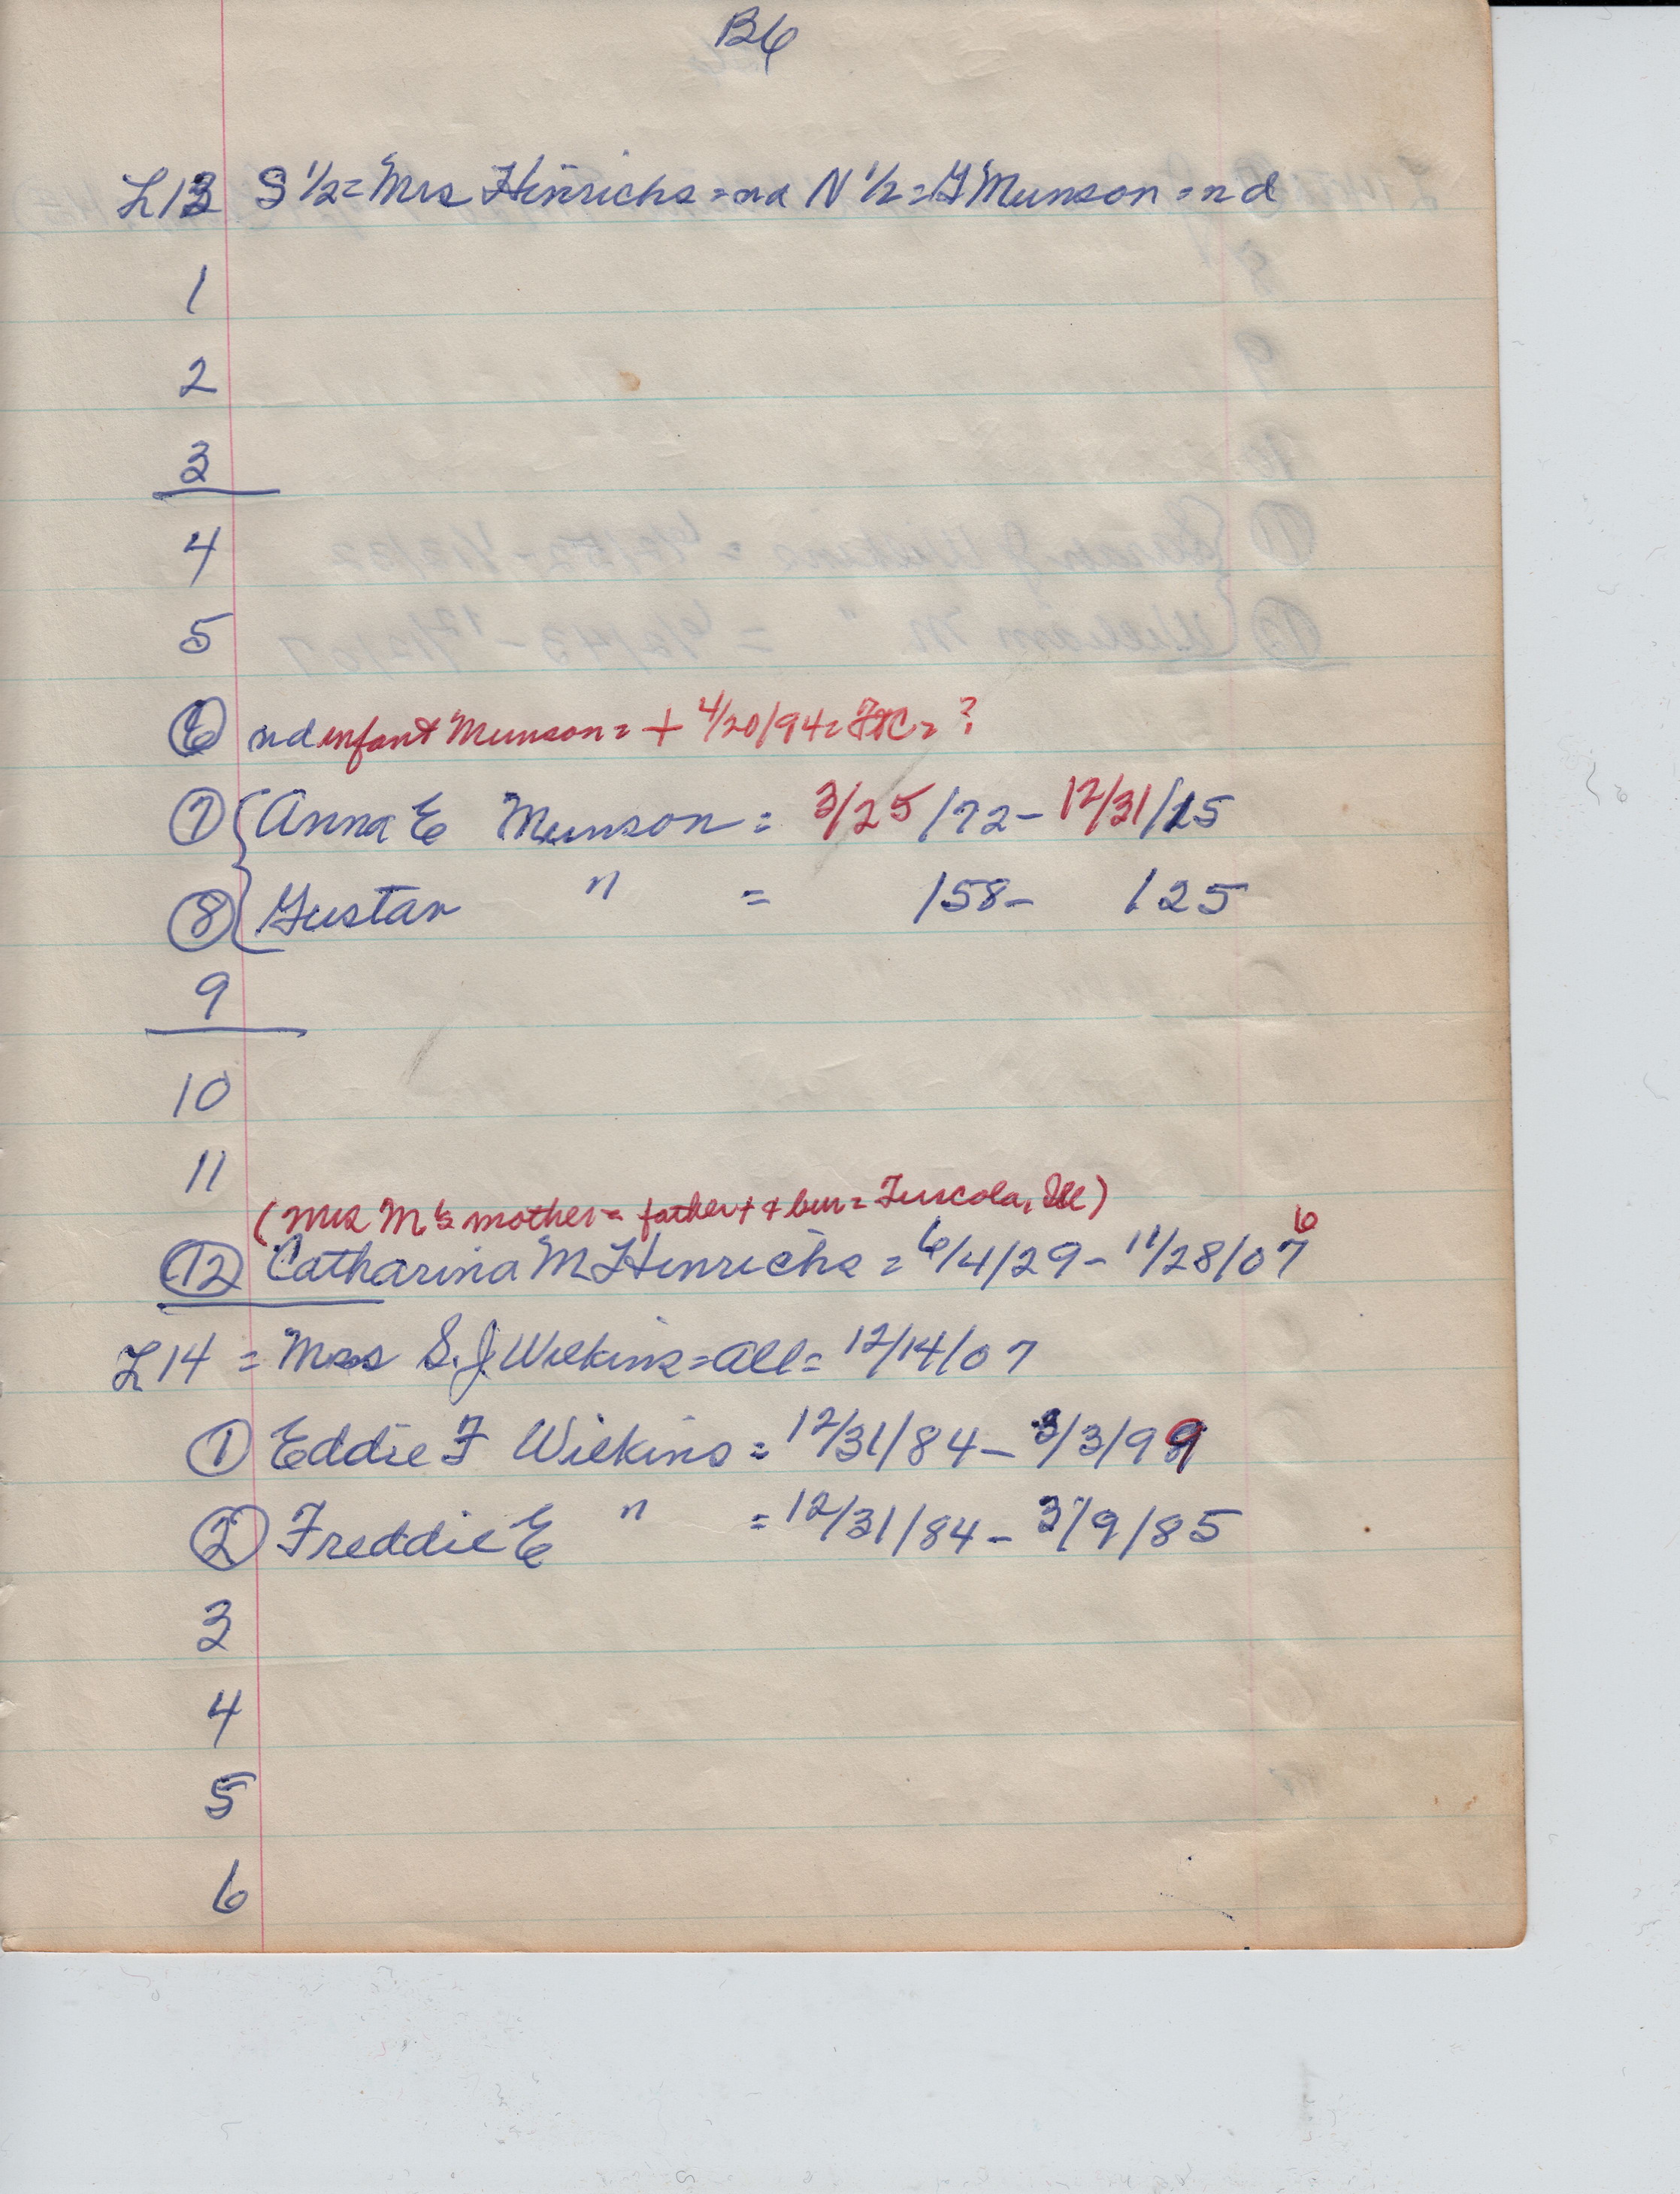 B6
L13 S 1/2 = Mrs Hinrichs = nd N 1/2 = G Munson = nd
1
2
3
4
5
6 nd infant Munson = + 4/20/94 = = ?
7 Anna E Munson = 3/25/72 - 12/31/15
8 Gustav " = /58 - /25
9
10
11
(Mrs M's mother = father + + bur = Tuscola, Ill)
6
12 Catharina M Hinrichs = 6/4/29 - 11/28/07
L14 = Mrs S. J. Wilkins = all = 12/14/07
1 Eddie F Wilkins = 12/31/84 - 3/3/99
2 Freddie E " = 12/31/84 - 3/9/85
3
4
5
6